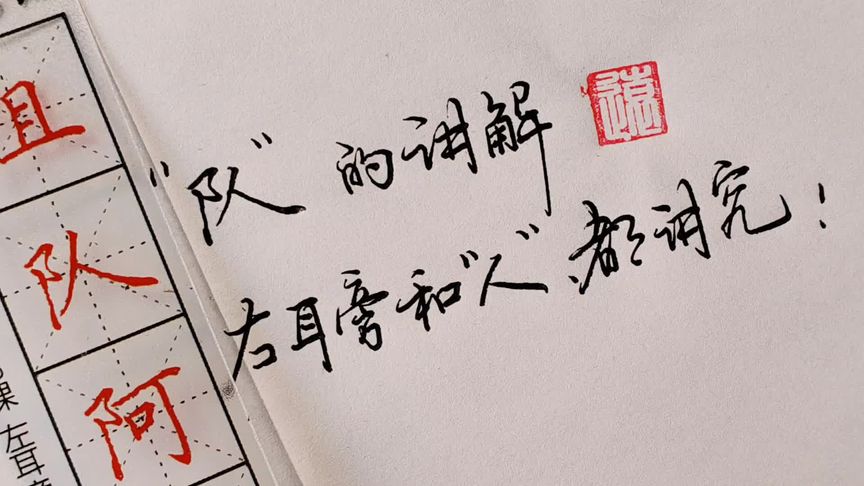 且
队
阿
课 左耳
"队"的讲解
右耳旁和"人"都讲究!